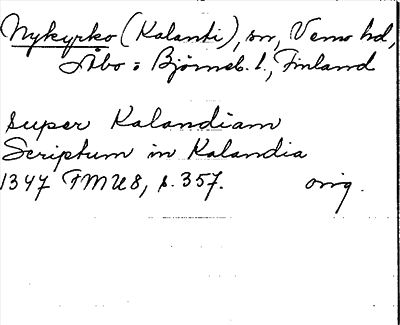 Nykyrko (Kalanti), sn, Vemo hd,
Åbo o Björneb. l., Finland
super Kalandiam
Scriptum in Kalandia
1347 FMU8, s. 357. orig.